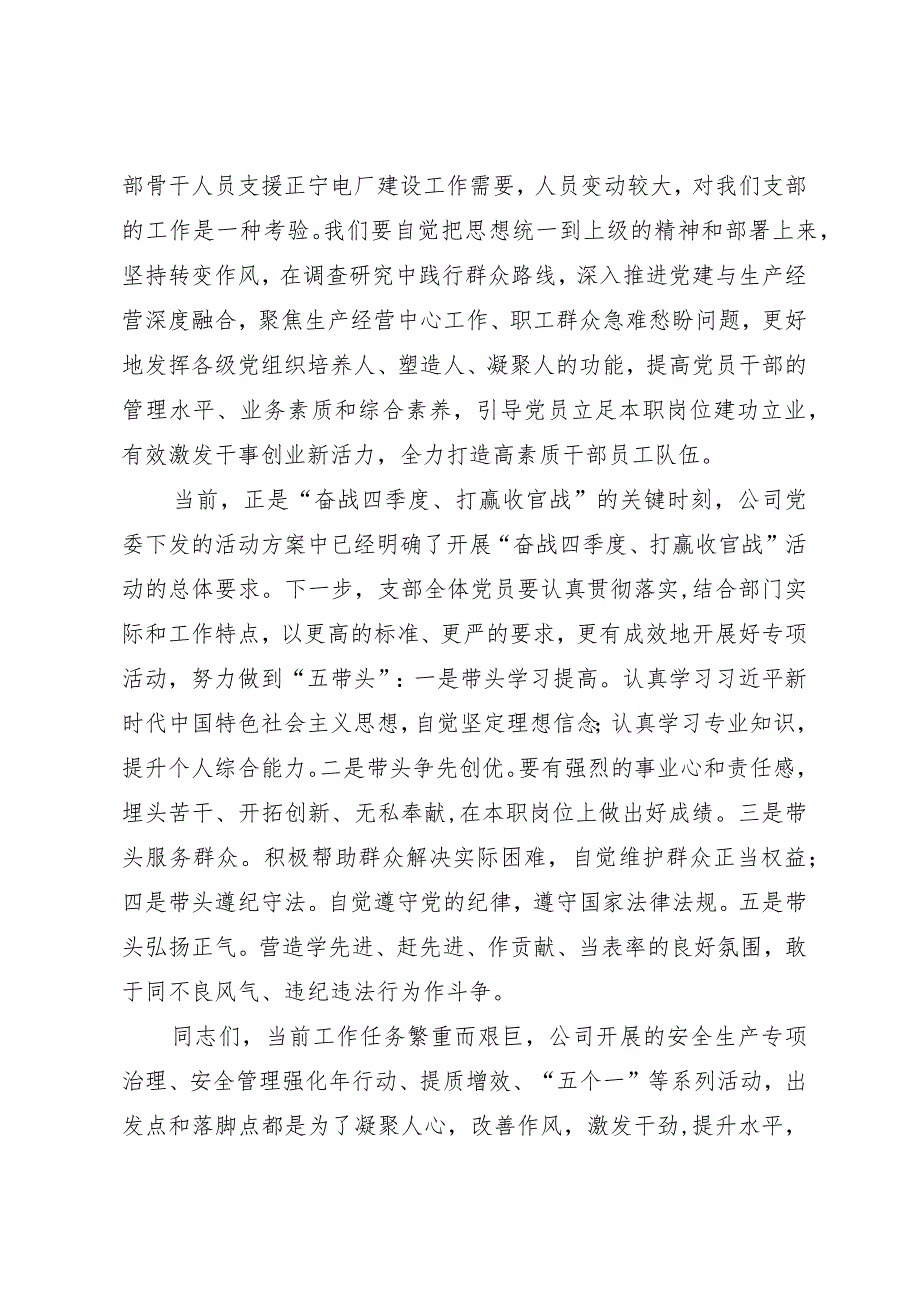 部骨干人员支援正宁电厂建设工作需要，人员变动较大，对我们支部
的工作是一种考验。我们要自觉把思想统一到上级的精神和部署上来，
坚持转变作风，在调查研究中践行群众路线，深入推进党建与生产经
营深度融合，聚焦生产经营中心工作、职工群众急难愁盼问题，更好
地发挥各级党组织培养人、塑造人、凝聚人的功能，提高党员干部的
管理水平、业务素质和综合素养，引导党员立足本职岗位建功立业，
有效激发干事创业新活力，全力打造高素质干部员工队伍。
当前，正是“奋战四季度、打赢收官战”的关键时刻，公司党
委下发的活动方案中已经明确了开展“奋战四季度、打赢收官战”活
动的总体要求。下一步，支部全体党员要认真贯彻落实,结合部门实
际和工作特点，以更高的标准、更严的要求，更有成效地开展好专项
活动，努力做到“五带头”：一是带头学习提高。认真学习习近平新
时代中国特色社会主义思想，自觉坚定理想信念；认真学习专业知识，
提升个人综合能力。二是带头争先创优。要有强烈的事业心和责任感，
埋头苦干、开拓创新、无私奉献,在本职岗位上做出好成绩。三是带
头服务群众。积极帮助群众解决实际困难，自觉维护群众正当权益；
四是带头遵纪守法。自觉遵守党的纪律，遵守国家法律法规。五是带
头弘扬正气。营造学先进、赶先进、作贡献、当表率的良好氛围，敢
于同不良风气、违纪违法行为作斗争。
同志们，当前工作任务繁重而艰巨，公司开展的安全生产专项
治理、安全管理强化年行动、提质增效、“五个一”等系列活动，出
发点和落脚点都是为了凝聚人心，改善作风，激发干劲,提升水平，